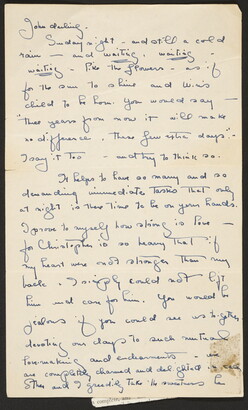 John darling,
Sunday night - and still a cold
rain - and waiting, waiting -
waiting - like the flowers - as if
for the sun to shine and Win's
child to be born. You would say -
"three years from now it will make
no difference. These few extra days" -
I say it too - and try to think so.
It helps to have so many and so
demanding immediate tasks that only
at night is there time to be on your hands.
I prove to myself how strong is love -
for Christopher is so heavy that if
my heart were not stronger than my
back - I simply could not lift
him and care for him. You would be
jealous if you could see us together
devoting our days to such mutual
love-making and endearments - we
are completely charmed and delighted in each
other and I greedily take the sweetness he